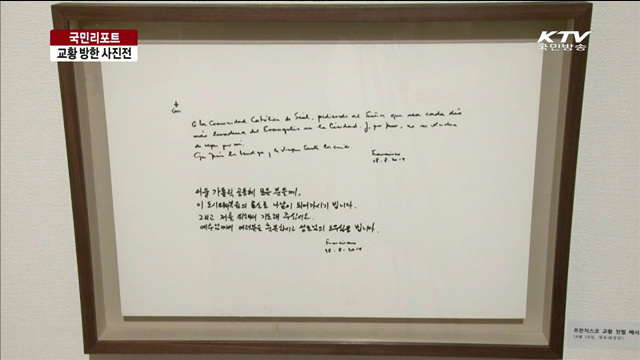 국민리포트
교황 방한 사진전
KTV
국민방송
A la Comunidad Católica de Seul, pidiendo al Señor que sea cada día
más levadura del Evangelio en la Ciudad. Y, por favor, no se olviden
de rezar por mí.
Que Jesús los bendiga y la Virgen Santa los cuide.
Francisco
18.8.2014
서울 가톨릭 공동체 모든 분들께,
이 도시에 복음의 누룩으로 나날이 되어가시기 빕니다.
그리고 저를 위해서 기도해 주십시오.
예수님께서 여러분을 축복하시고 성모님의 보우하심을 빕니다.
Francisco
18.8.2014
프란치스코 교황 친필 메시